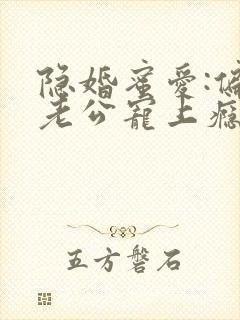 隐婚蜜爱:偏
老公宠上瘾
五方磐石